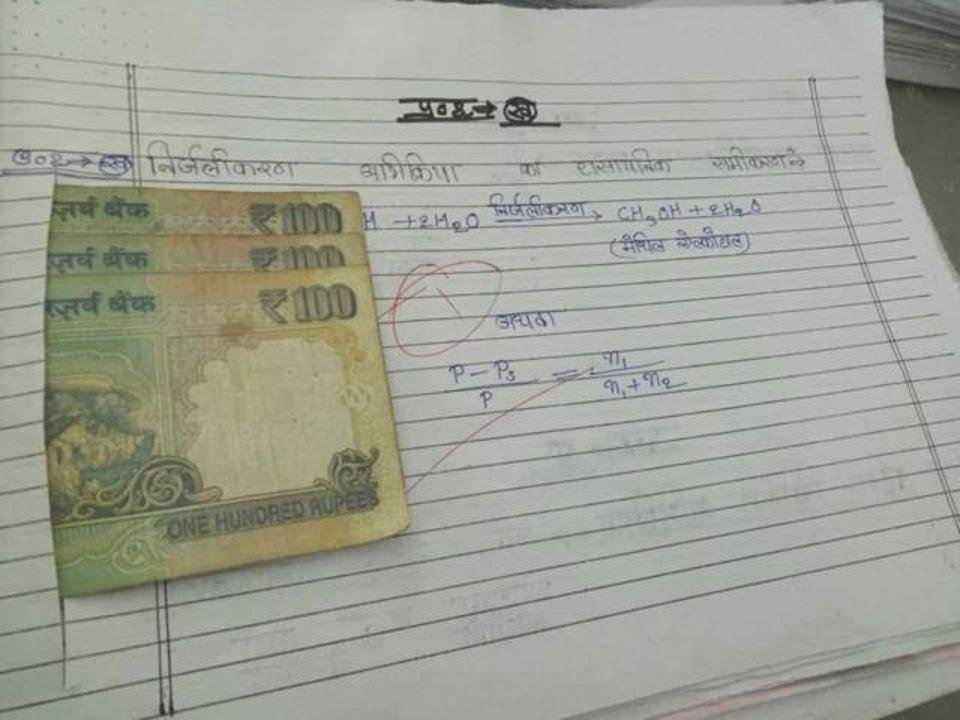 प्र०२→ख
प्र०२→ख निर्जलीकरण अभिक्रिया का रासायनिक समीकरण→
H + 2H₂O निर्जलीकरण→ CH₃OH + 2H₂O
(मैथिल एल्कोहल)
अथवा
P - Pₛ / P = n₁ / n₁ + n₂
ज़र्व बैंक ₹100
ज़र्व बैंक ₹100
रज़र्व बैंक ₹100
ONE HUNDRED RUPEES